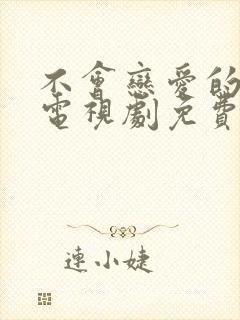 不會戀愛的
電視劇免費
連小婕